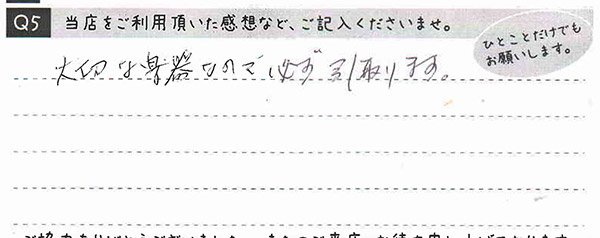 Q5 当店をご利用頂いた感想など、ご記入くださいませ。
ひとことだけでも
お願いします。
大切な楽器なので必ず引取ります。